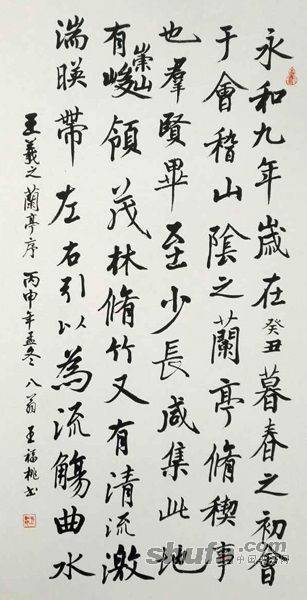 永和九年歲在癸丑暮春之初會
于會稽山陰之蘭亭脩稧事
也羣賢畢至少長咸集此地
有崇山峻領茂林脩竹又有清流激
湍暎帶左右引以為流觴曲水
王羲之蘭亭序 丙申年孟冬 八翁 王福桃书